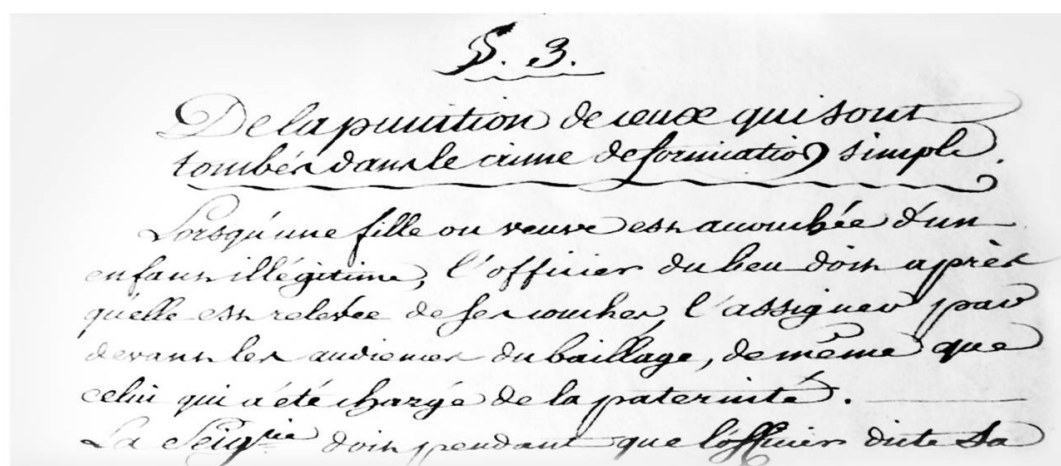 §. 3.
De la punition de ceux qui sont
tombés dans le crime de fornication simple.
Lorsqu'une fille ou veuve est accouchée d'un
enfant illégitime, l'officier du lieu doit après
qu'elle est relevée de ses couches, l'assigner par
devant les audiences du baillage, de même que
celui qui a été chargé de la paternité.
La Seig.rie doit pendant que l'officier dicte sa